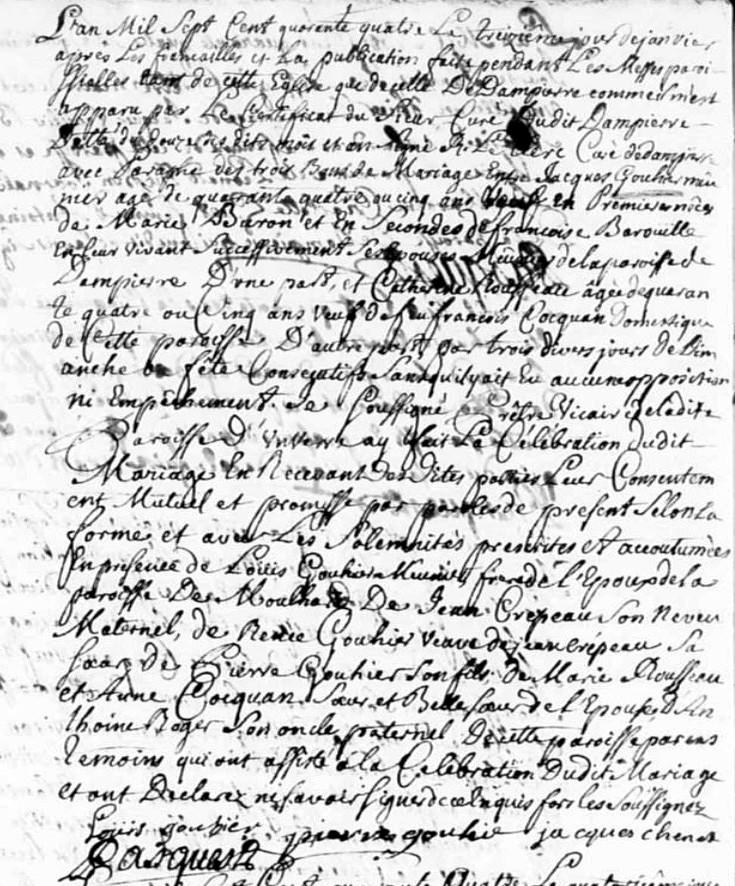 L'an Mil Sept Cent quarente quatre Le treizieme jour de janvier
après Les fiencailles et La publication faite pendant Les Messes paroi-
ssialles tant de cette Eglise que de celle De Dampierre comme il m'est
apparu par Le Certificat du Sieur Curé Dudit Dampierre
Datté du douze des dits mois et an Signé Curé de dampierre
avec des trois Bans de Mariage Entre Jacques Gouhier
agé de quarante quatre ou cinq ans Veuf en Premieres nôces
de Marie Baron et En Secondes de francoise Barouille
En Leur vivant Successivement Ses Epouses Meunier de la paroisse de
Dampierre D'une part, et Catherine Rousseau agée de quaran
te quatre ou Cinq ans veuve de feu francois Cocquan Domestique
de Cette paroisse D'autre part, par trois divers jours de Dim
anche ou fête Consecutifs Sans qu'il y ait Eu aucune opposition
ni Empêchement. Je Soussigné Prêtre Vicaire de ladite
Paroisse d' ay fait La Célébration Dudit
Mariage En Recevant des Dites parties Leur Consentem
ent Mutuel et promesse par paroles de présent Selon La
forme et avec Les Solemnités prescrites et accoutumées
En présence de Loüis Gouhier Meunier frere de l'Epoux de la
paroisse De De Jean Crépeau Son Neveu
Maternel, de Renée Gouhier veuve de jean crépeau Sa
Sœur de Pierre Gouhier Son fils, de Marie Rousseau
et Anne Cocquan Sœur et Belle Sœur de l'Epouse, d'An
thoine Boger Son oncle paternel De cette paroisse parens
temoins qui ont assisté à la Célébration Dudit Mariage
et ont Declarez ne Savoir Signer de ce Enquis fors les Soussignez
Louis gouhier pierre gouhie jacques chenet
Pasquer